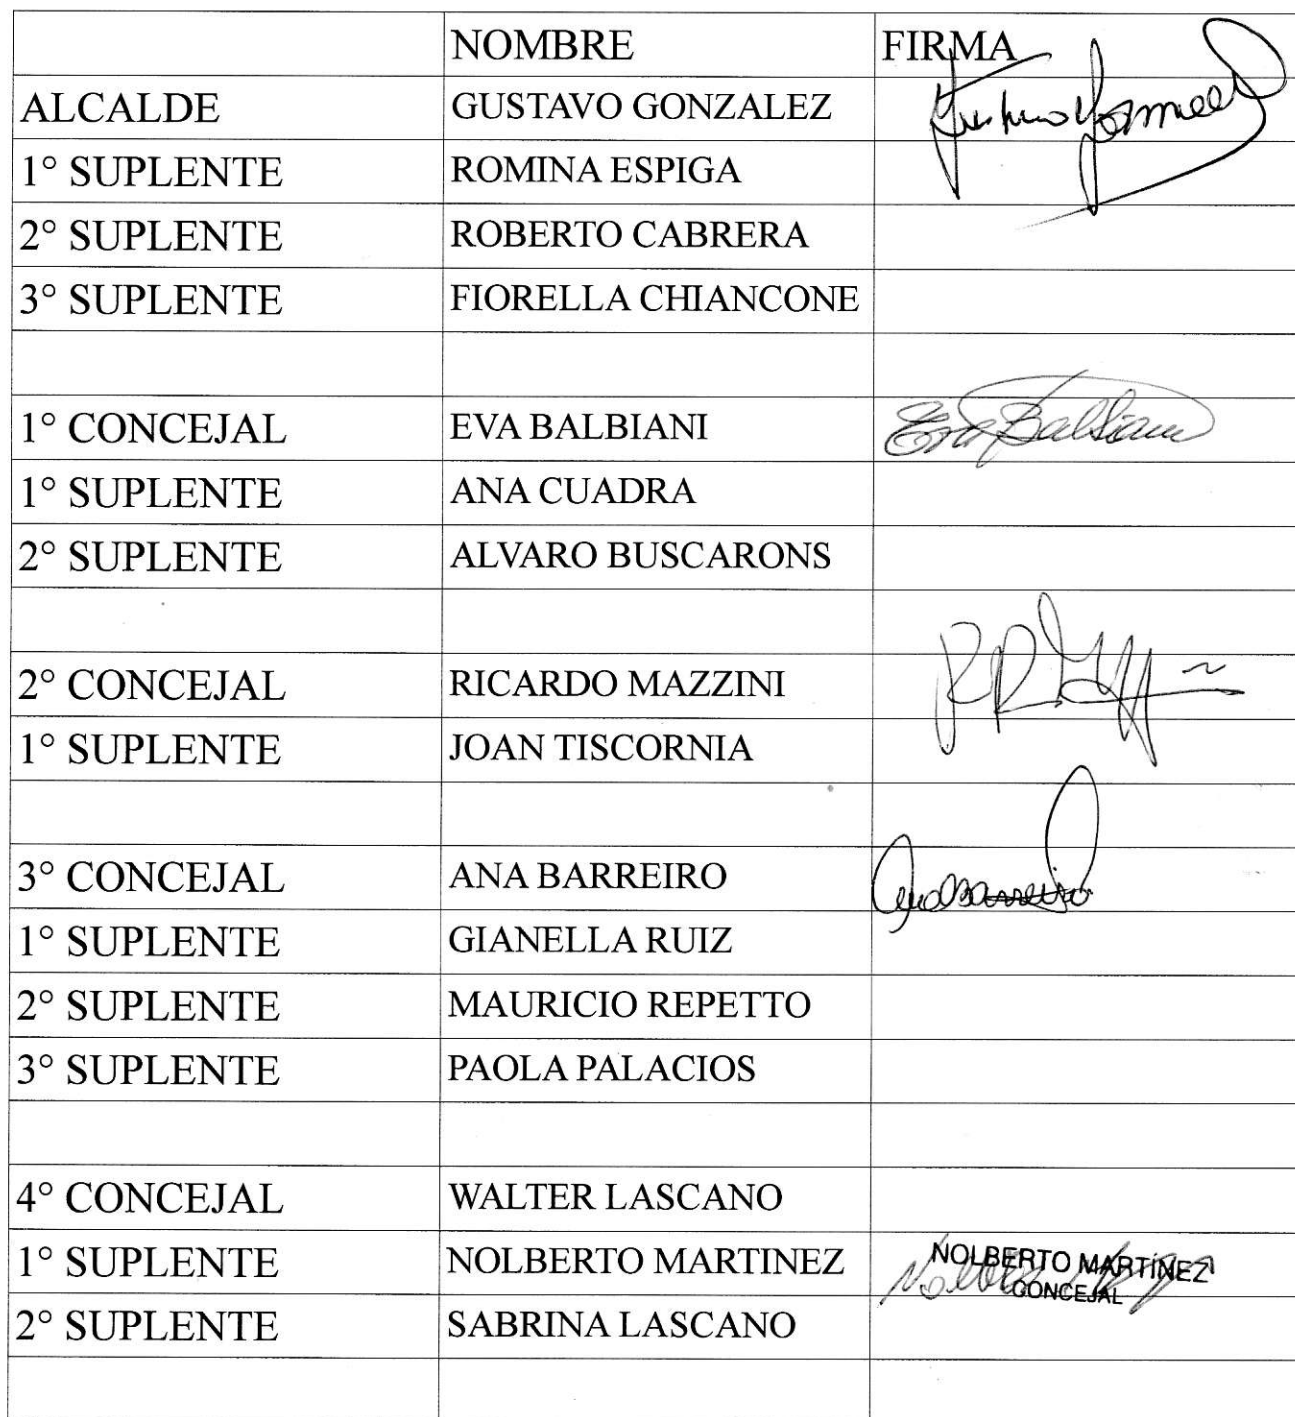 NOMBRE FIRMA
ALCALDE GUSTAVO GONZALEZ Gustavo Gonzalez
1° SUPLENTE ROMINA ESPIGA
2° SUPLENTE ROBERTO CABRERA
3° SUPLENTE FIORELLA CHIANCONE
1° CONCEJAL EVA BALBIANI Eva Balbiani
1° SUPLENTE ANA CUADRA
2° SUPLENTE ALVARO BUSCARONS
2° CONCEJAL RICARDO MAZZINI
1° SUPLENTE JOAN TISCORNIA
3° CONCEJAL ANA BARREIRO Ana Barreiro
1° SUPLENTE GIANELLA RUIZ
2° SUPLENTE MAURICIO REPETTO
3° SUPLENTE PAOLA PALACIOS
4° CONCEJAL WALTER LASCANO
1° SUPLENTE NOLBERTO MARTINEZ NOLBERTO MARTÍNEZ
CONCEJAL
2° SUPLENTE SABRINA LASCANO